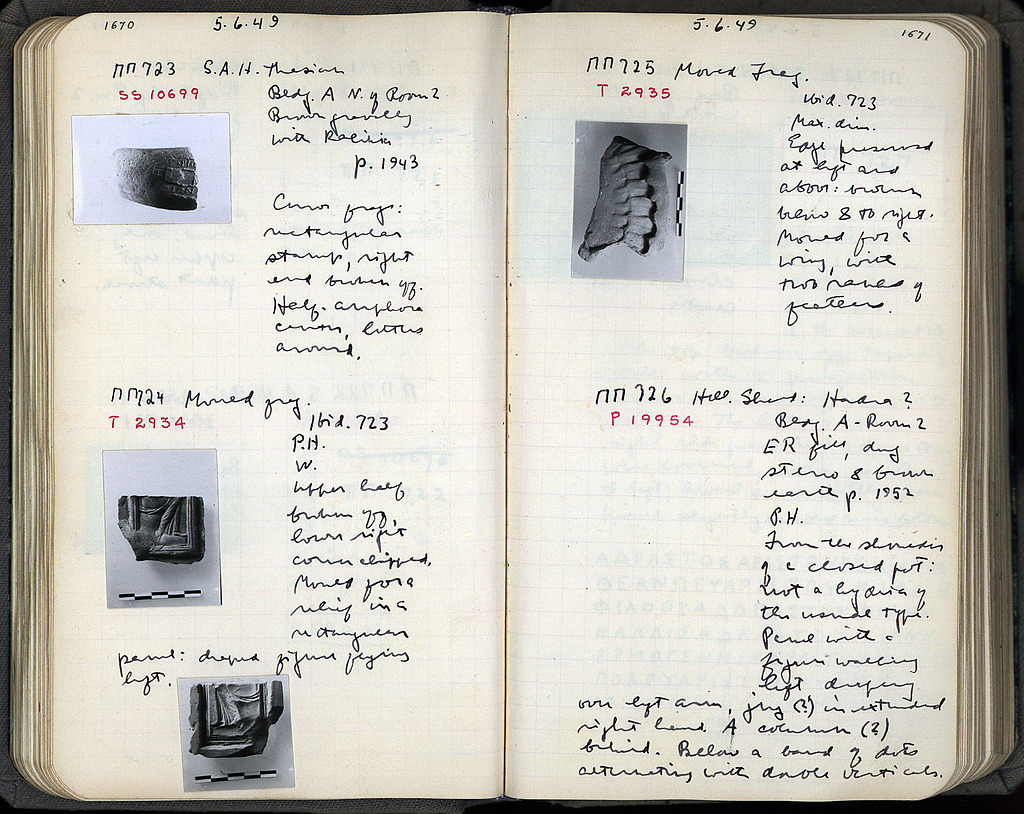 1670
5.6.49
ΠΠ 723 S.A.H. Thasian
SS 10699
Bldg. A N. of Room 2
Brown gravelly
with
p. 1943
Curved frag:
rectangular
stamp, right
end broken off.
Half amphora
center, letters
around.
ΠΠ 724 Mould frag.
T 2934
Ibid. 723
P.H.
W.
Upper half
broken off,
lower right
corner chipped.
Mould for a
relief in a
rectangular
panel: draped figure facing
left.
5.6.49
1671
ΠΠ 725 Mould Frag.
T 2935
Ibid. 723
Max. dim.
Edge preserved
at left and
above: broken
below & to right.
Mould for a
wing, with
two ranks of
feathers.
ΠΠ 726 Hell. Sherd: Hadra?
P 19954
Bldg. A - Room 2
ER fill, dug
stereo & brown
earth p. 1952
P.H.
From the shoulder
of a closed pot:
not a hydria of
the usual type.
Panel with a
figure walking
left, drapery
over left arm, jug (?) in extended
right hand. A column (?)
behind. Below a band of dots
alternating with double verticals.